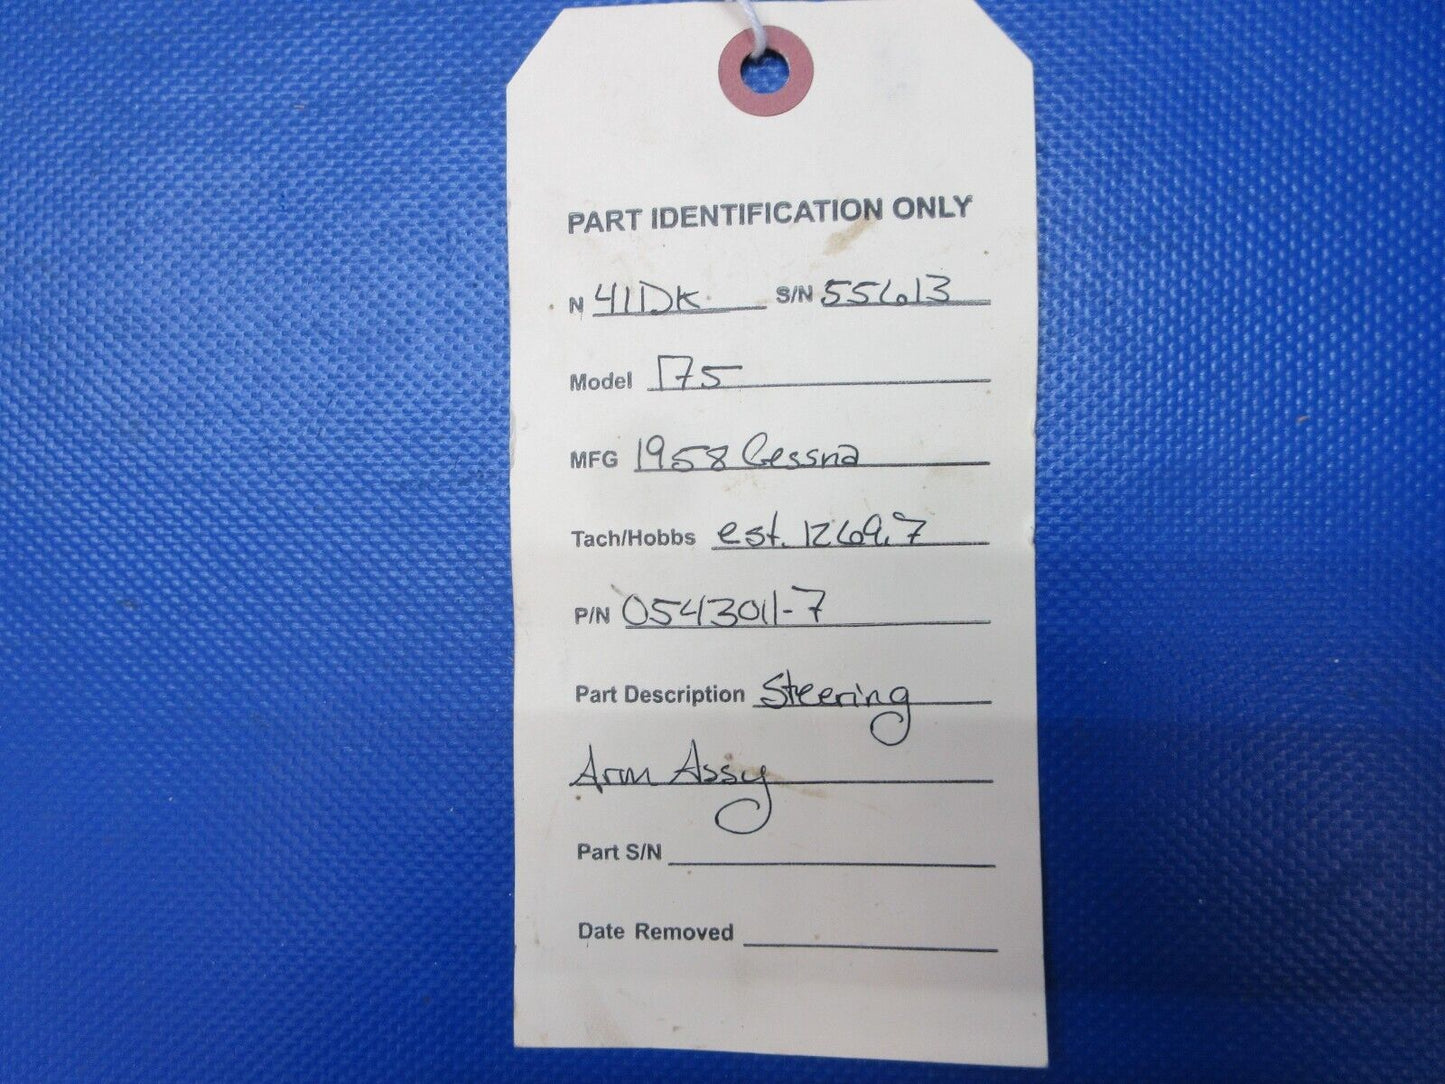 PART IDENTIFICATION ONLY
N 41DK S/N 55613
Model 175
MFG 1958 Cessna
Tach/Hobbs est. 1269.7
P/N 0543011-7
Part Description Steering
Arm Assy
Part S/N
Date Removed